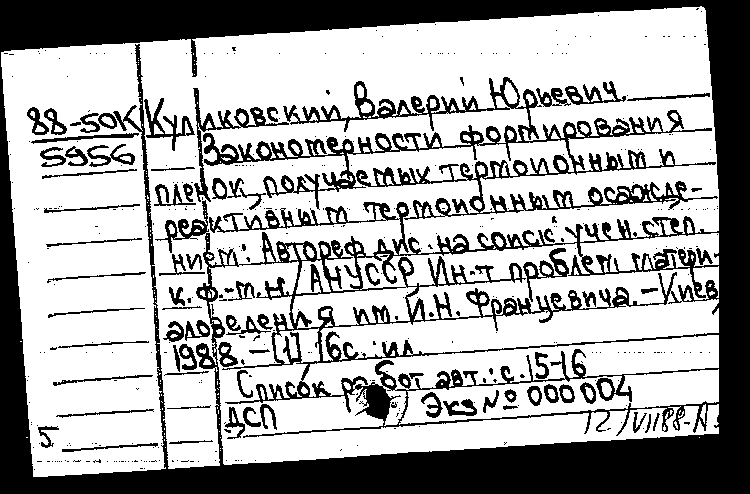 88-50К Куликовский, Валерий Юрьевич.
5956 Закономерности формирования
пленок, получаемых термоионным и
реактивным термоионным осажде-
нием: Автореф. дис. на соиск. учен. степ.
к.ф.-м.н. / АН УССР. Ин-т проблем матери-
аловедения им. И.Н. Францевича. – Киев,
1988. – [1] 16с. : ил.
Список работ авт.: с. 15-16
ДСП Экз № 000 004
5 12/VII88-А